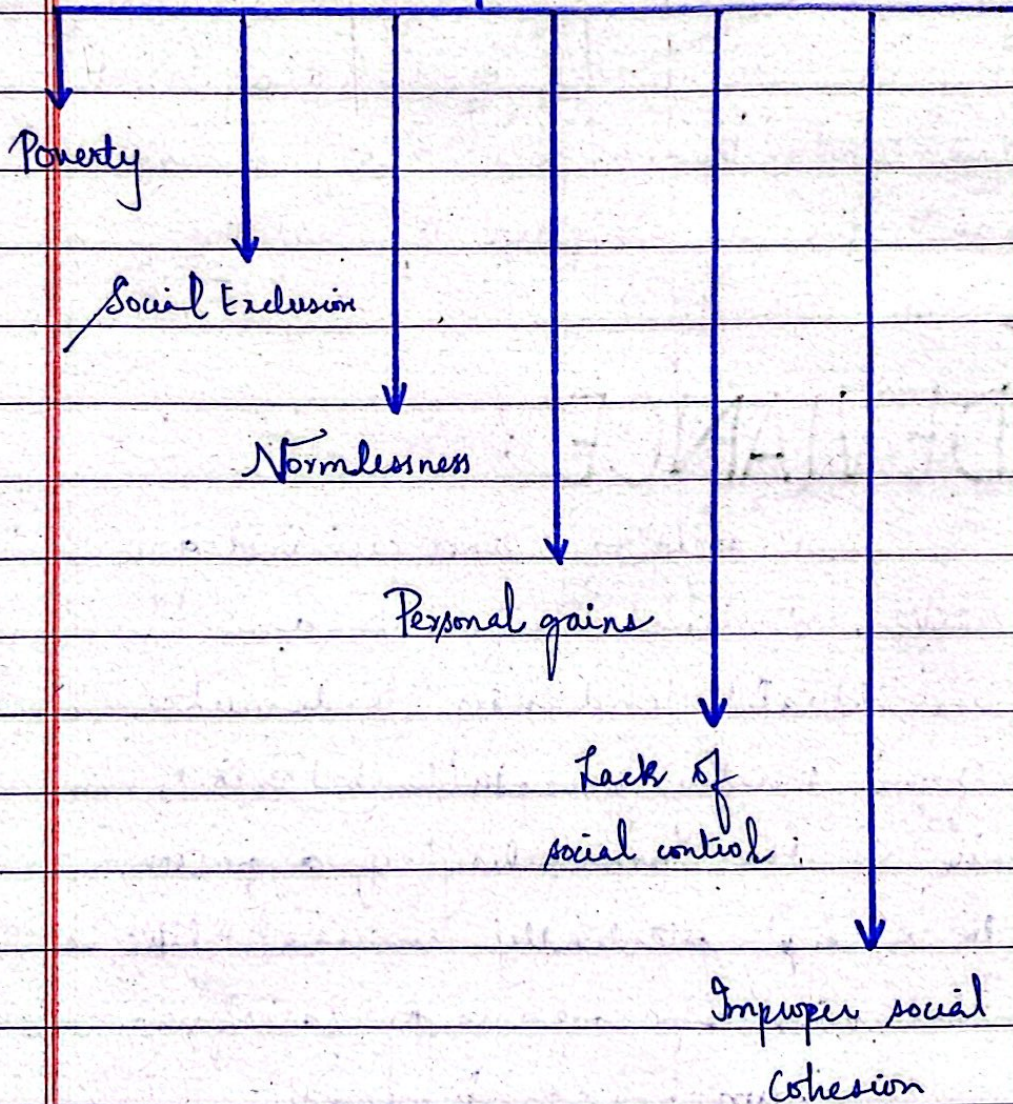 Poverty
Social Exclusion
Normlessness
Personal gains
Lack of
social control
Improper social
Cohesion